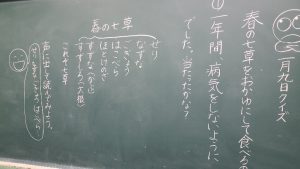 一月九日クイズ
春の七草をおかゆにして食べるの
① 一年間、病気をしないように
でした。当たったかな？
春の七草
せり
なずな
ごぎょう
はこべら
ほとけのざ
すずな(かぶ)
すずしろ(大根)
これぞ七草
声に出して読んでみよう。
せり なずな ごぎょう はこべら